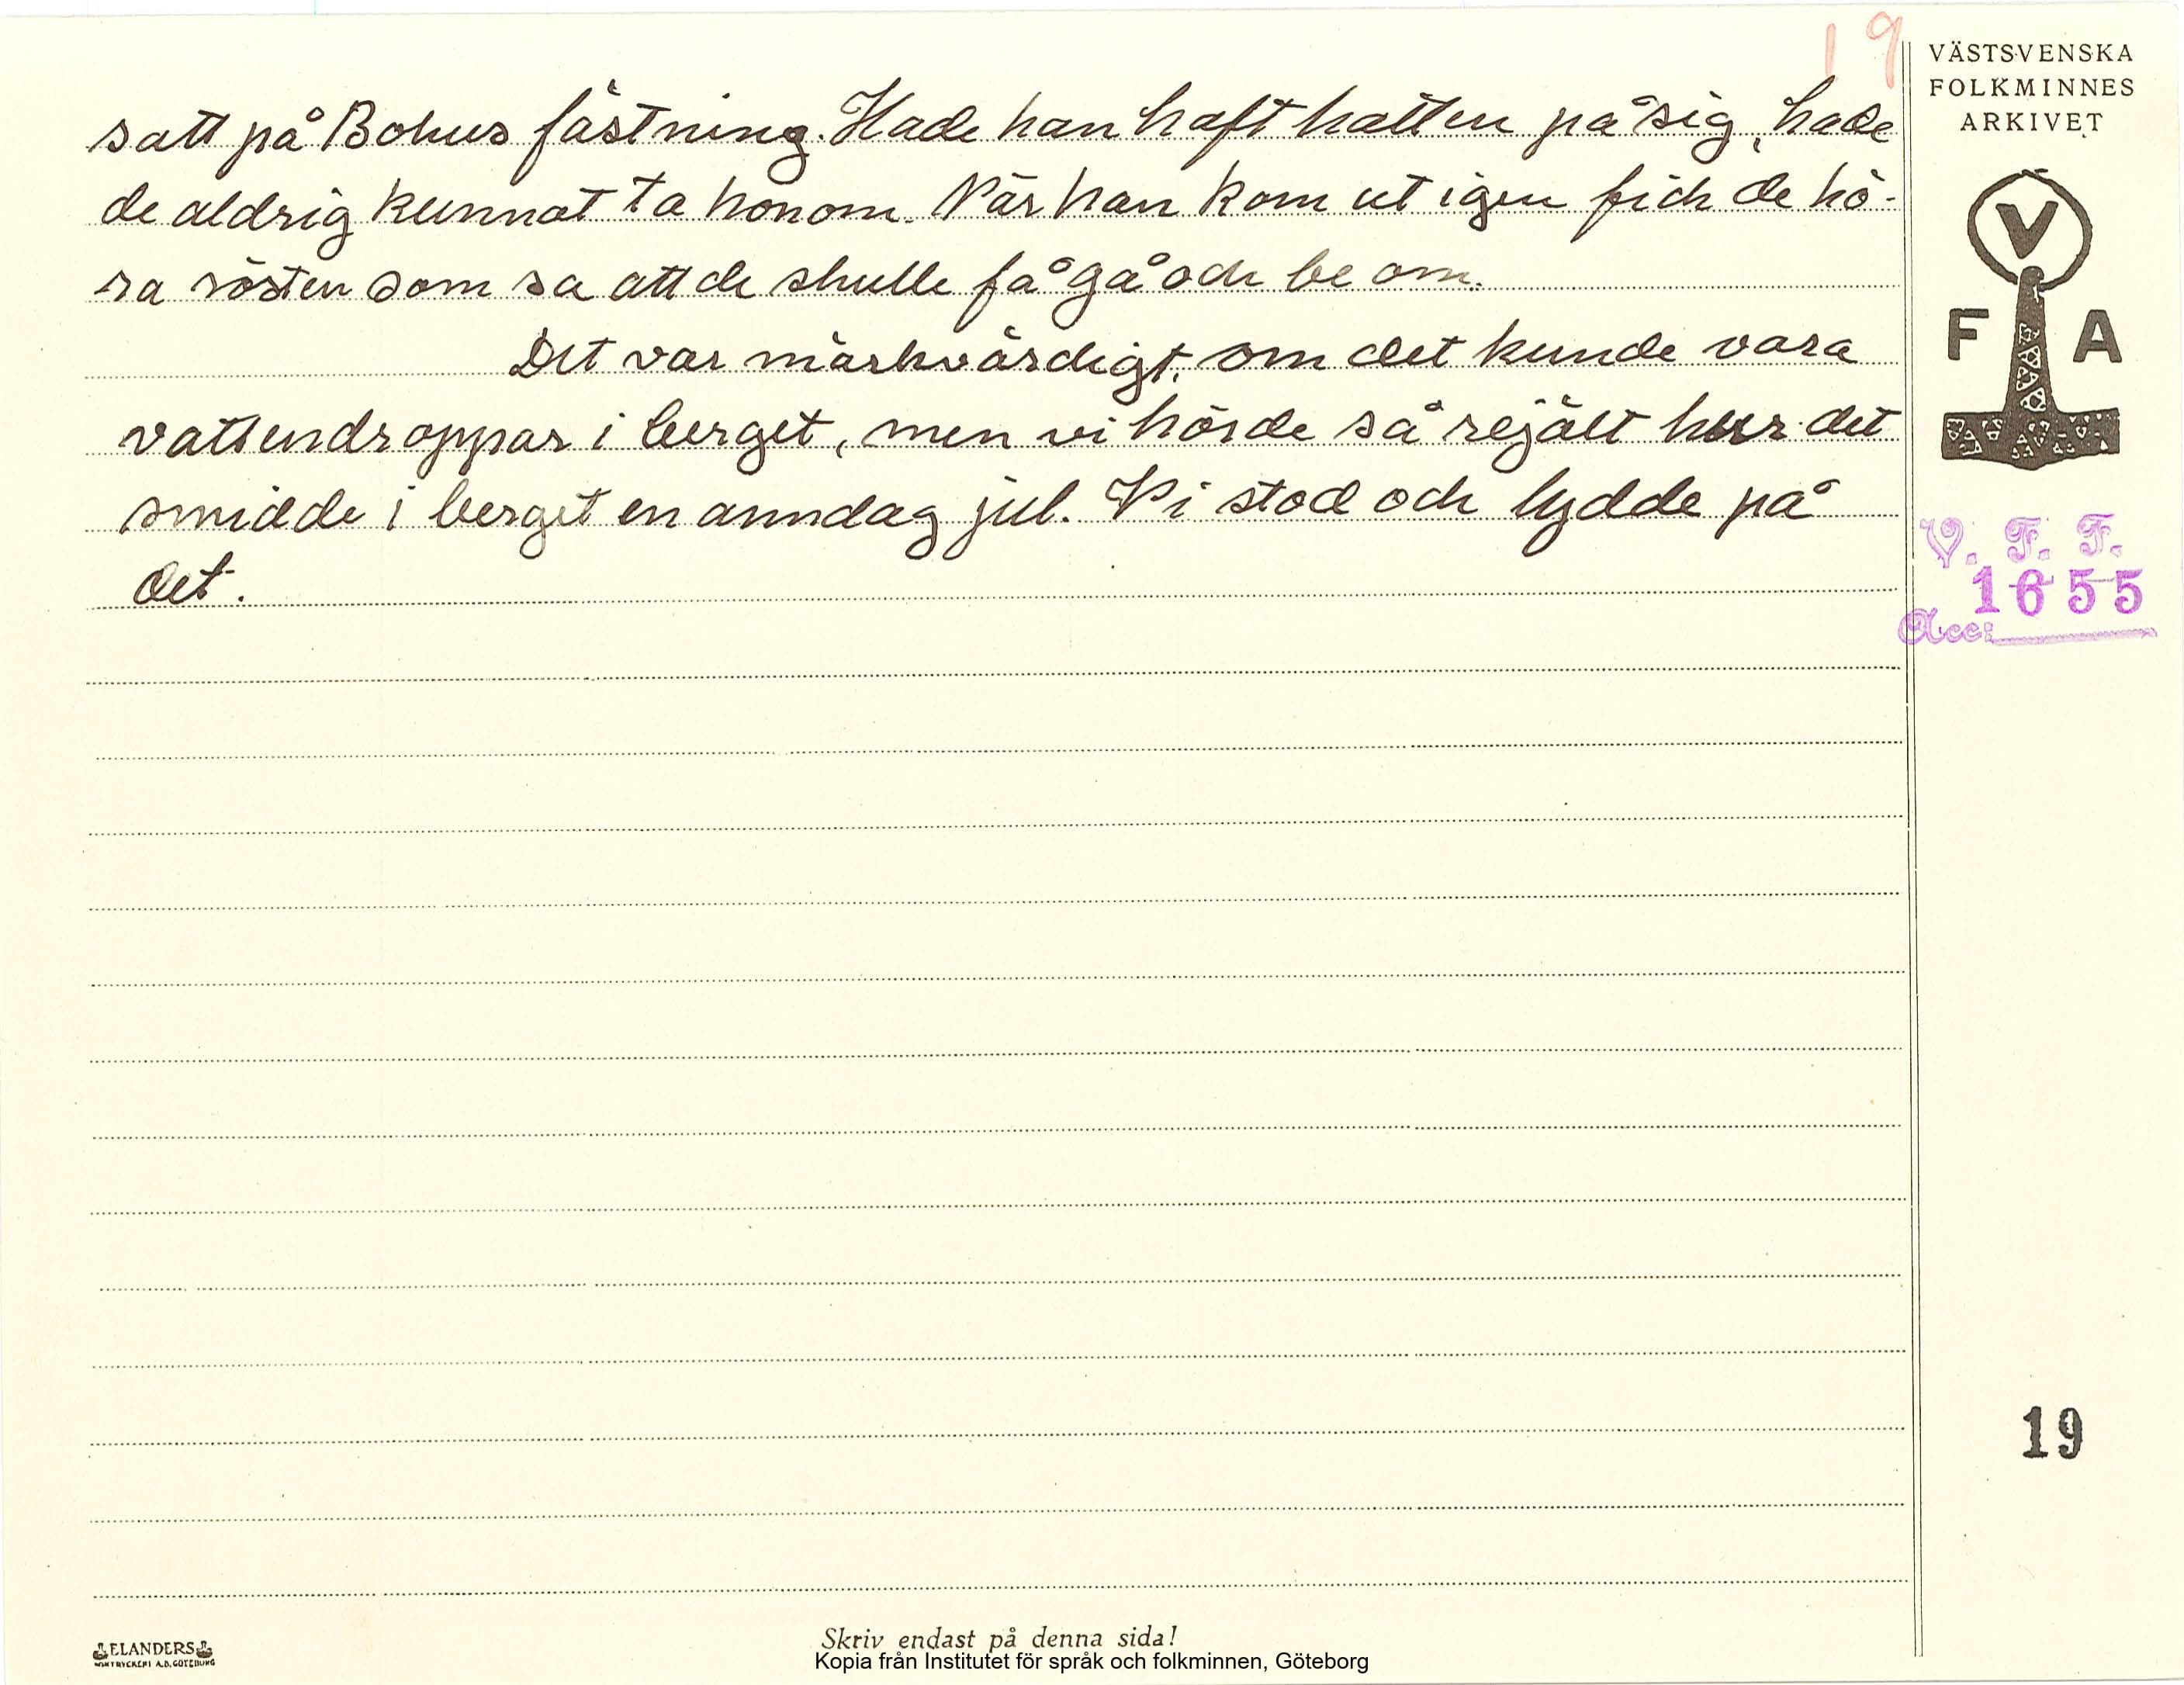 19
satt på Bohus fästning. Hade han haft hatten på sig, hade
de aldrig kunnat ta honom. När han kom ut igen fick de hö-
ra rösten som sa att de skulle få gå och be om.
Det var märkvärdigt, om det kunde vara
vattendroppar i berget, men vi hörde så rejält hur det
smidde i berget en anndag jul. Vi stod och lydde på
det.
VÄSTSVENSKA
FOLKMINNES
ARKIVET
V
F A
V. F. F.
1655
Acc:
19
ELANDERS
BOKTRYCKERI A.B. GÖTEBORG
Skriv endast på denna sida!
Kopia från Institutet för språk och folkminnen, Göteborg